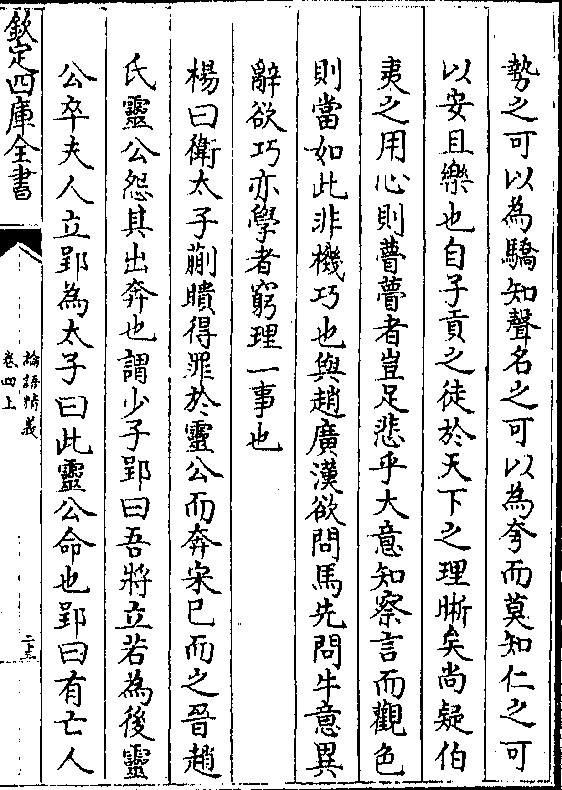 勢之可以為驕知聲名之可以為夸而莫知仁之可
以安且樂也自子貢之徒於天下之理晣矣尚疑伯
夷之用心則瞢瞢者豈足悲乎大意知察言而觀色
則當如此非機巧也與趙廣漢欲問馬先問牛意異
辭欲巧亦學者窮理一事也
楊曰衛太子蒯聵得罪於靈公而奔宋已而之晉趙
氏靈公怨其出奔也謂少子郢曰吾將立若為後靈
公卒夫人立郢為太子曰此靈公命也郢曰有亡人
欽定四庫全書
論語精義
卷四上
二十三